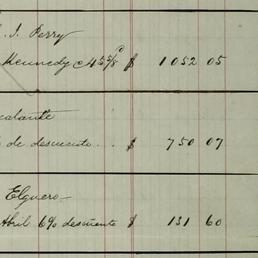 . J. Perry
Kennedy c 45⅝ $ 1052 05
calante
de descuento . . . $ 750 07
Elguero
Abril 6% descuento $ 131 60